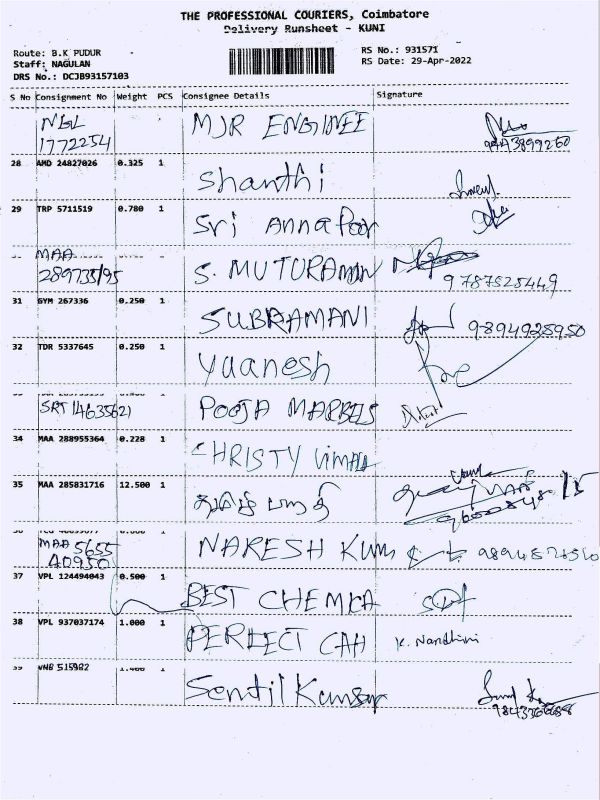 THE PROFESSIONAL COURIERS, Coimbatore
Delivery Runsheet - KUNI
Route: B.K PUDUR
RS No.: 931571
Staff: NAGULAN
RS Date: 29-Apr-2022
DRS No.: DCJB93157103
S No Consignment No Weight PCS Consignee Details Signature
NGL
1772254 MJR ENGINEE
9443899260
28 AMD 24827026 0.325 1 Shanthi
29 TRP 5711519 0.780 1 Sri Annapoor
MAA
289735195 S. MUTURAMAN 9787525449
31 GYM 267336 0.250 1 SUBRAMANI 9894925950
32 TDR 5337645 0.250 1 Yuanesh
SRT 14635621 POOJA MARBELS
34 MAA 288955364 0.228 1 CHRISTY VIMALA
35 MAA 285831716 12.500 1
MAA 5655
40950 NARESH KUM
37 VPL 124494043 0.500 1 BEST CHEMICA
38 VPL 937037174 1.000 1 PERFECT CAH K. Nandhini
39 VNB 515982 Sentil Kumar